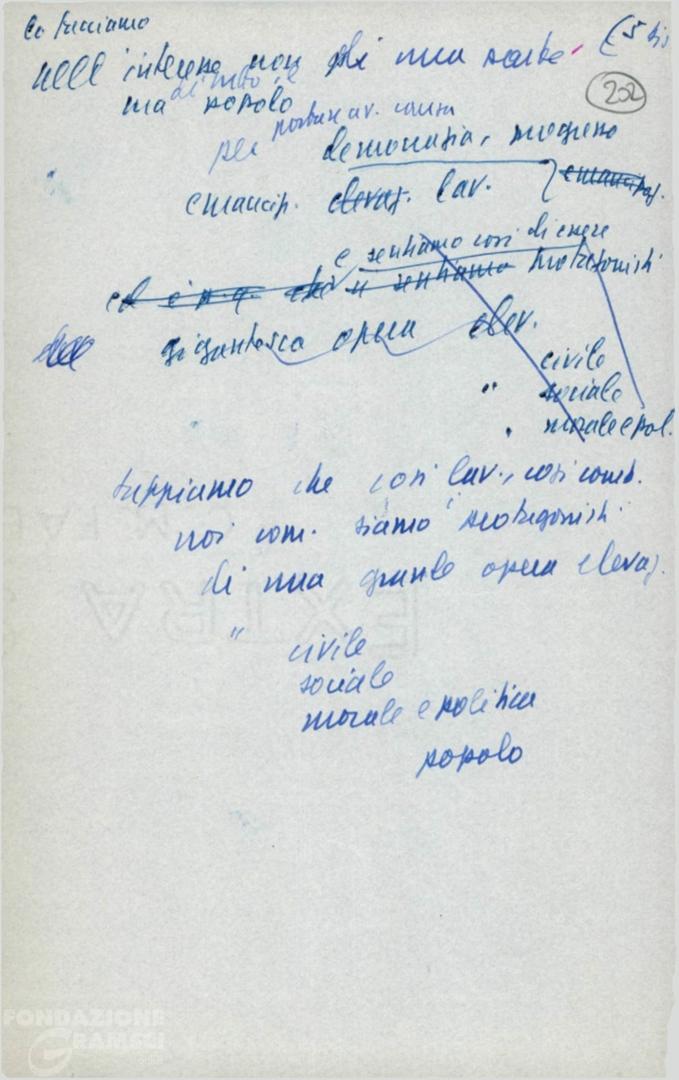 Lo facciamo
(5 bis
nell'interesse non di una parte
202
di tutto il
ma popolo
portare av. causa
per democrazia, progresso
emancip. elevaz. lav. emancipaz.
e sentiamo così di essere
ed è p. q. che si sentiamo protagonisti
gigantesca opera elev.
civile
" sociale
" morale e pol.
sappiamo che così lav., così comb.
noi com. siamo protagonisti
di una grande opera elevaz.
" civile
sociale
morale e politica
popolo
EXTRA
FONDAZIONE
GRAMSCI